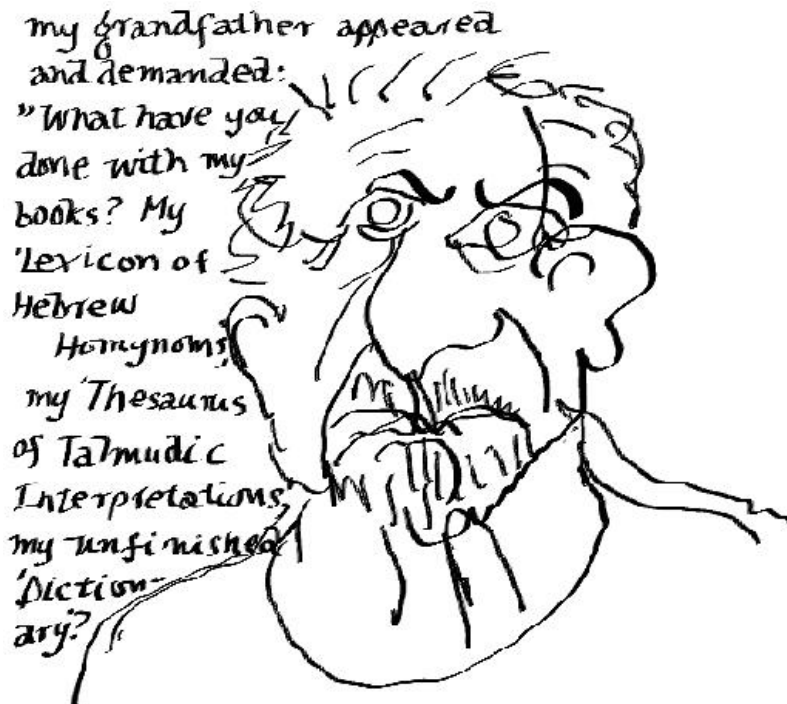 my grandfather appeared
and demanded:
"What have you
done with my
books? My
'Lexicon of
Hebrew
Homynoms,'
my 'Thesaurus
of Talmudic
Interpretations,'
my unfinished
'Diction-
ary'?